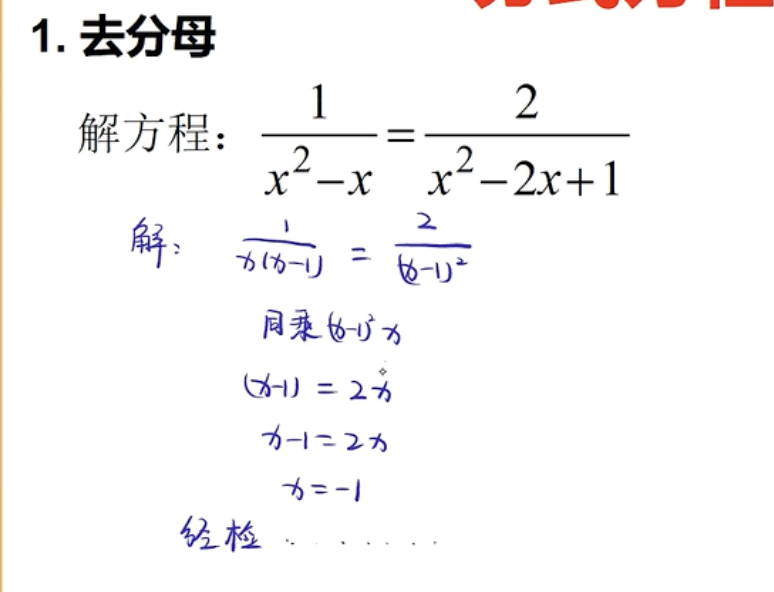 1. 去分母
解方程： 1/(x²−x) = 2/(x²−2x+1)
解： 1/(x(x−1)) = 2/(x−1)²
同乘(x−1)²x
(x−1) = 2x
x−1=2x
x=−1
经检 ........